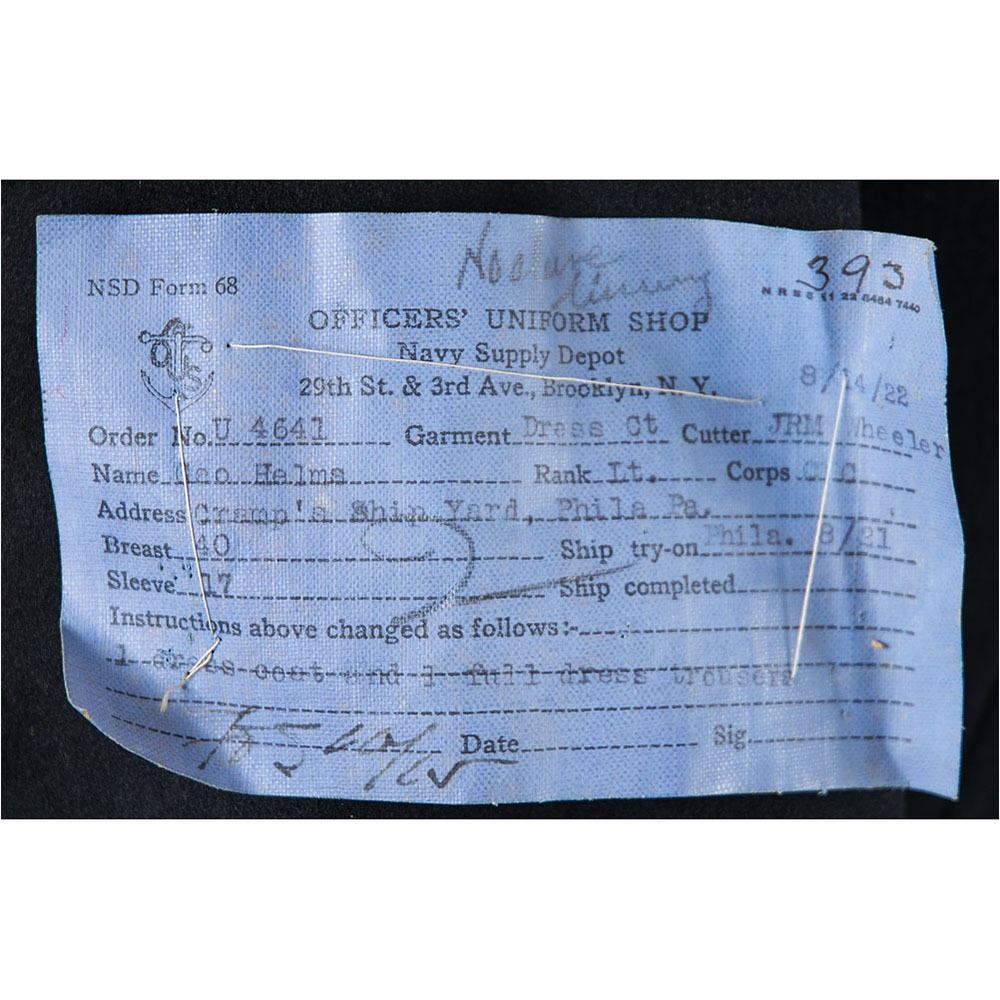 393
NSD Form 68
OFFICERS' UNIFORM SHOP
Navy Supply Depot
29th St. & 3rd Ave., Brooklyn, N. Y.
8/14/22
Order No. U 4641 Garment Dress Ct Cutter JRM Wheeler
Name Geo Helms Rank Lt. Corps
Address Cramp's Ship Yard, Phila Pa.
Breast 40 Ship try-on Phila. 8/21
Sleeve 17 Ship completed
Instructions above changed as follows:-
1 dress coat and 1 full dress trousers
Date Sig.